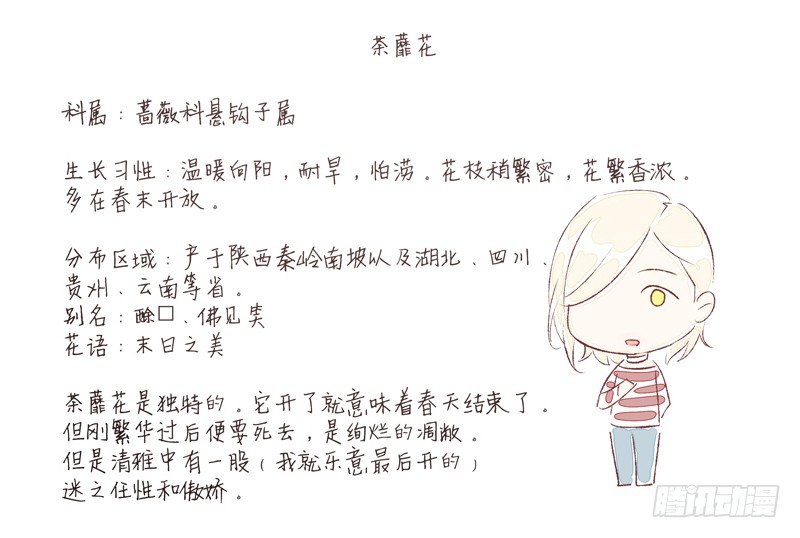 荼蘼花
科属：蔷薇科悬钩子属
生长习性：温暖向阳，耐旱，怕涝。花枝稍繁密，花繁香浓。
多在春末开放。
分布区域：产于陕西秦岭南坡以及湖北、四川、
贵州、云南等省。
别名：酴□、佛见笑
花语：末日之美
荼蘼花是独特的。它开了就意味着春天结束了。
但刚繁华过后便要死去，是绚烂的凋敝。
但是清雅中有一股（我就乐意最后开的）
迷之任性和傲娇。
腾讯动漫